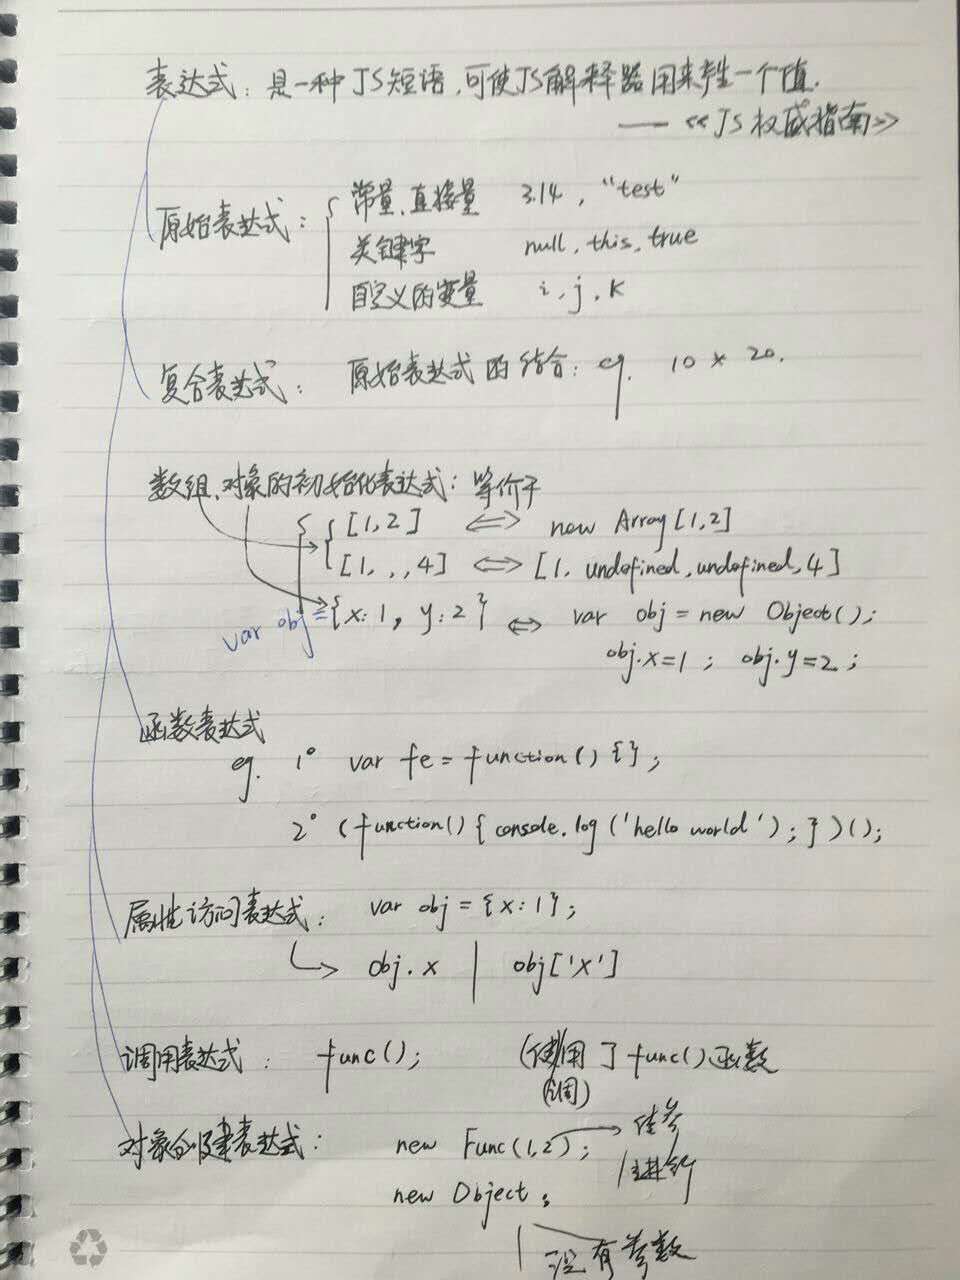 表达式：是一种JS短语，可使JS解释器用来产生一个值.
——《JS权威指南》
原始表达式：
常量、直接量 3.14, "test"
关键字 null, this, true
自定义的变量 i, j, k
复合表达式： 原始表达式的结合：eg. 10 × 20.
数组、对象的初始化表达式：等价于
[1,2] <=> new Array[1,2]
[1, , ,4] <=> [1, undefined, undefined, 4]
var obj = {x:1, y:2} <=> var obj = new Object();
obj.x=1; obj.y=2;
函数表达式
eg. 1° var fe = function() {};
2° (function() { console.log('hello world'); })();
属性访问表达式： var obj = {x:1};
obj.x | obj['x']
调用表达式： func(); (使用了func()函数
(调)
对象创建表达式： new Func(1,2); 传参
new Object;
没有参数